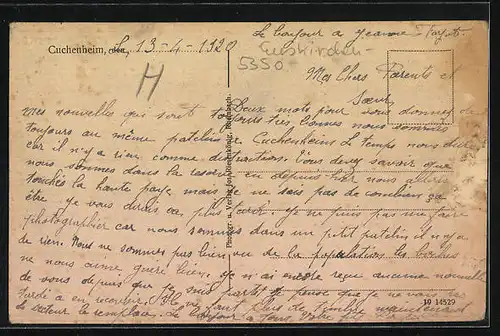 Le bonjour a Jeanne
Cuchenheim, 13-4-1920
Euskirchen
5350
H
Mes Chers Parents et
Sœur,
Deux mots pour vous donner de
mes nouvelles qui sont toujours très bonnes nous sommes
toujours au même patelin de Cuchenheim le temps nous dure
car il n'y a rien comme distractions. Vous devez savoir que
nous sommes dans la reserve en depuis nous allons
touchés la haute paye mais je ne sais pas de combien ça
être je vous dirais ça plus tard. Je ne puis pas me faire
photographier car nous sommes dans un petit patelin il n'y a
de rien. Nous ne sommes pas bien vu de la population les boches
ne nous aime guère bien. Je n'ai encore reçu aucune nouvelle
de vous depuis que je suis partit je pense que je ne vais
tarde a en recevoir. plus de timbre maintenant
le vateur le remplace. Le bonjour a tous
Photogr. u. Verlag Jos.
10 14529